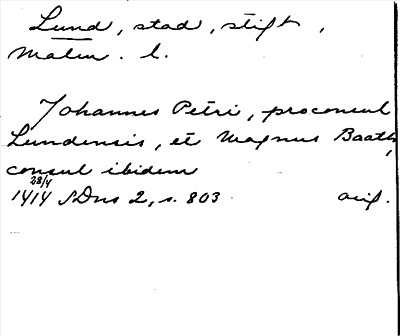 Lund, stad, stift,
Malm. l.
Johannes Petri, proconsul
Lundensis, et Magnus Baath,
consul ibidem
28/4
1414 SDns 2, s. 803 orig.